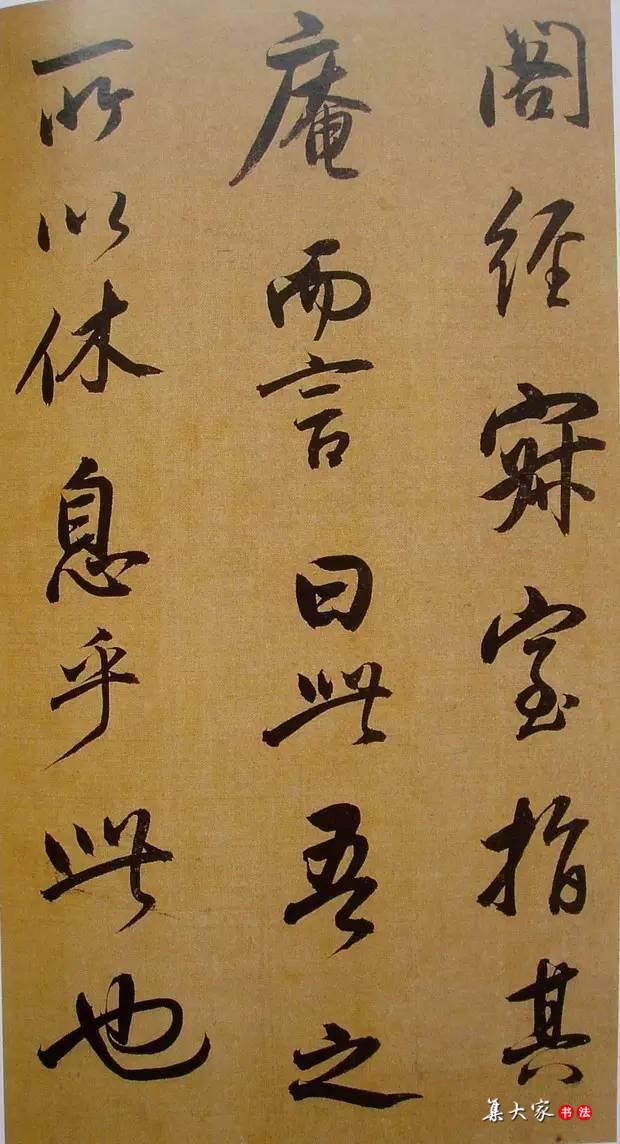 阁经寂室指其
庵而言曰此吾之
所以休息乎此也
集大家书法